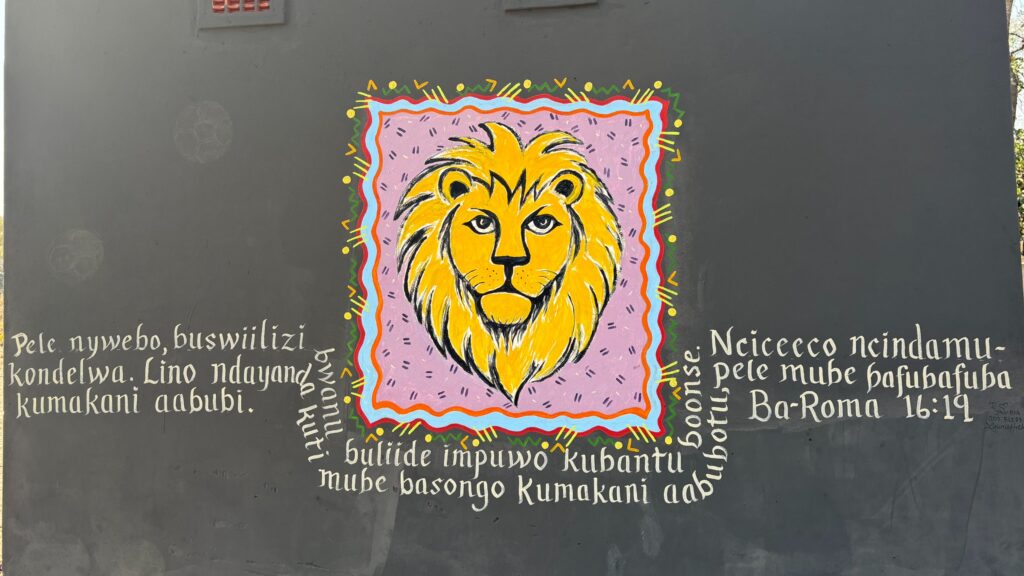 Pele nywebo, buswiilizi bwanu buliide impuwo kubantu boonse. Nciceeco ncindamu-
kondelwa. Lino ndayanda kuti mube basongo kumakani aabubotu, pele mube bafubafuba
kumakani aabubi.
Ba-Roma 16:19